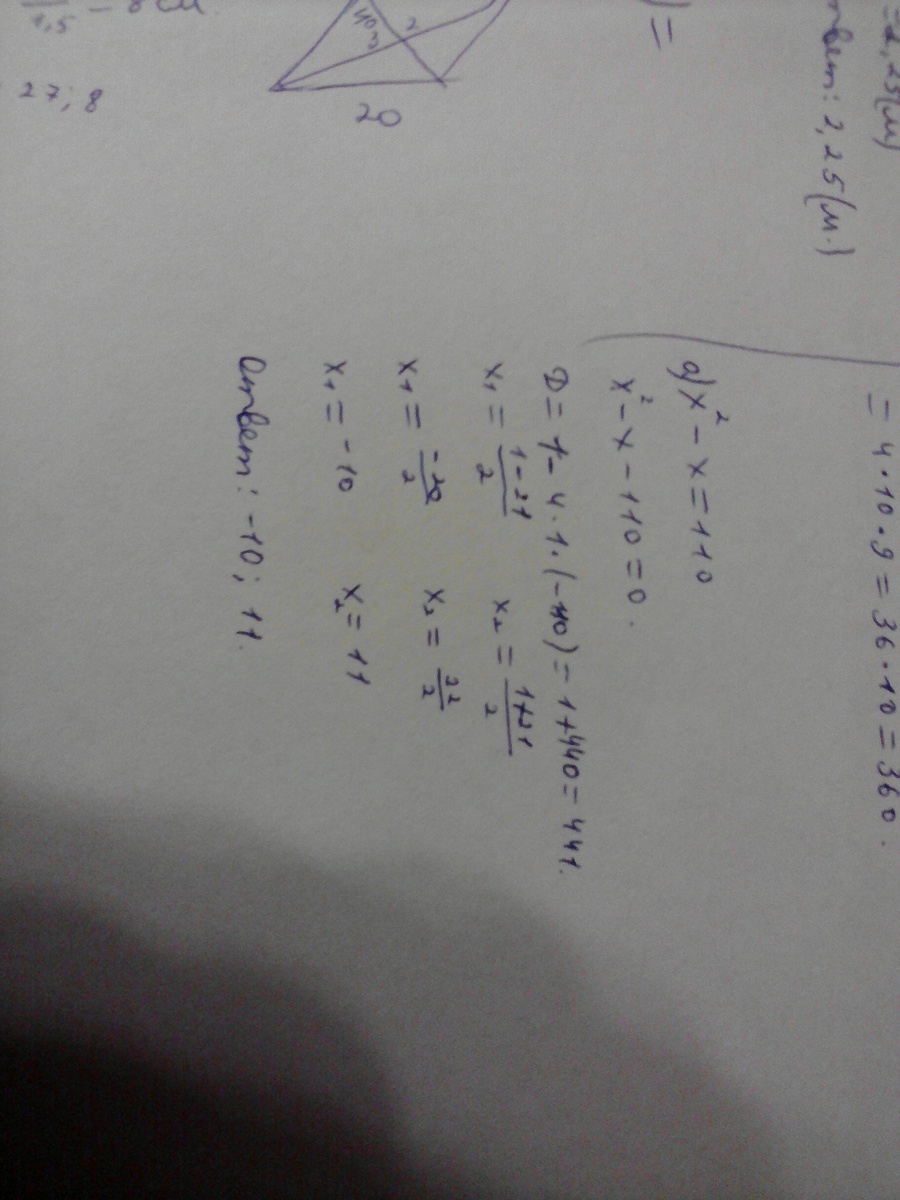 = 2,25(м)
твет: 2,25(м.)
) =
= 4·10·9 = 36·10 = 360.
20
27; 8
а) x² - x = 110
x² - x - 110 = 0.
D = 1 - 4·1·(-110) = 1 + 440 = 441.
x₁ = (1-21)/2 x₂ = (1+21)/2
x₁ = -20/2 x₂ = 22/2
x₁ = -10 x₂ = 11
Ответ: -10; 11.